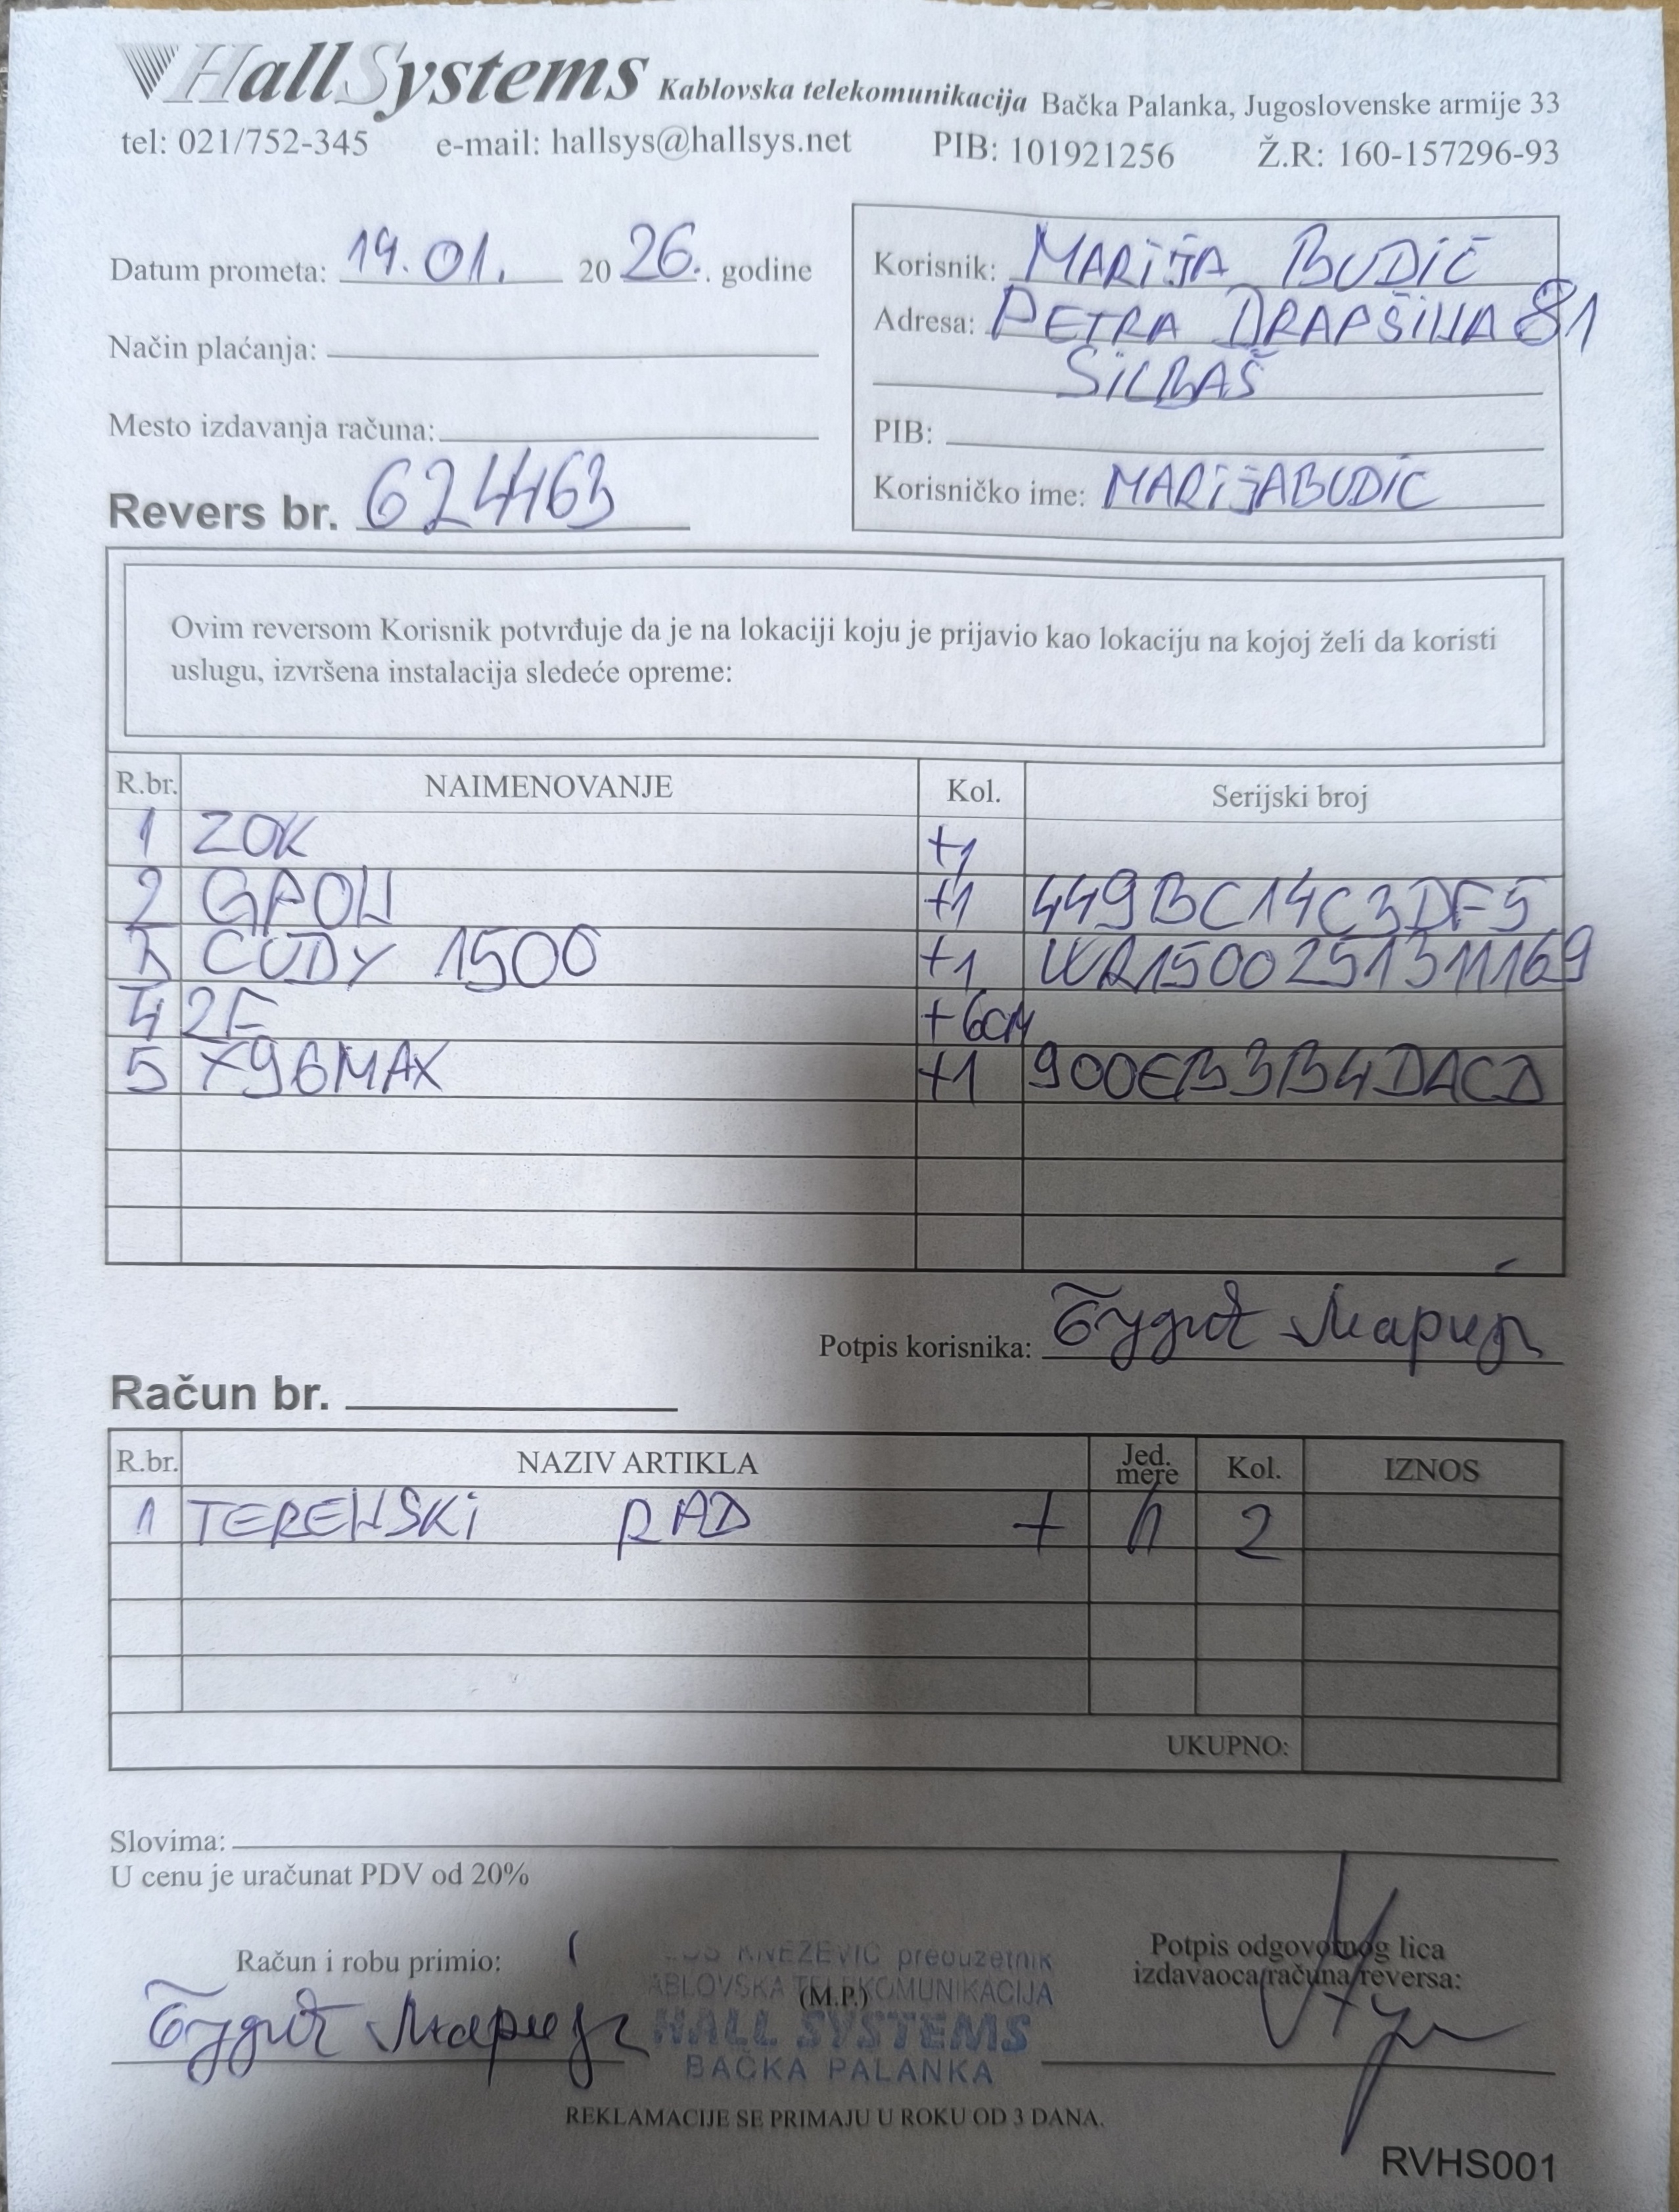 HallSystems Kablovska telekomunikacija Bačka Palanka, Jugoslovenske armije 33
tel: 021/752-345 e-mail: hallsys@hallsys.net PIB: 101921256 Ž.R: 160-157296-93
Datum prometa: 19.01. 2026. godine
Način plaćanja:
Mesto izdavanja računa:
Revers br. 624463
Korisnik: MARIJA BUDIĆ
Adresa: PETRA DRAPŠINA 81
SILBAŠ
PIB:
Korisničko ime: MARIJABUDIC
Ovim reversom Korisnik potvrđuje da je na lokaciji koju je prijavio kao lokaciju na kojoj želi da koristi
uslugu, izvršena instalacija sledeće opreme:
R.br. NAIMENOVANJE Kol. Serijski broj
1 ZOK +1
2 GPON +1 449BC14C3DF5
3 CUDY 1500 +1 WR1500251311169
4 2F +6CM
5 X96MAX +1 900EB3B4DACD
Potpis korisnika: Будић Марија
Račun br.
R.br. NAZIV ARTIKLA Jed. mere Kol. IZNOS
1 TERENSKI RAD + h 2
UKUPNO:
Slovima:
U cenu je uračunat PDV od 20%
Račun i robu primio:
Будић Марија
KNEŽEVIĆ preduzetnik
ABLOVSKA TELEKOMUNIKACIJA
(M.P.)
HALL SYSTEMS
BAČKA PALANKA
Potpis odgovornog lica
izdavaoca računa/reversa:
REKLAMACIJE SE PRIMAJU U ROKU OD 3 DANA.
RVHS001